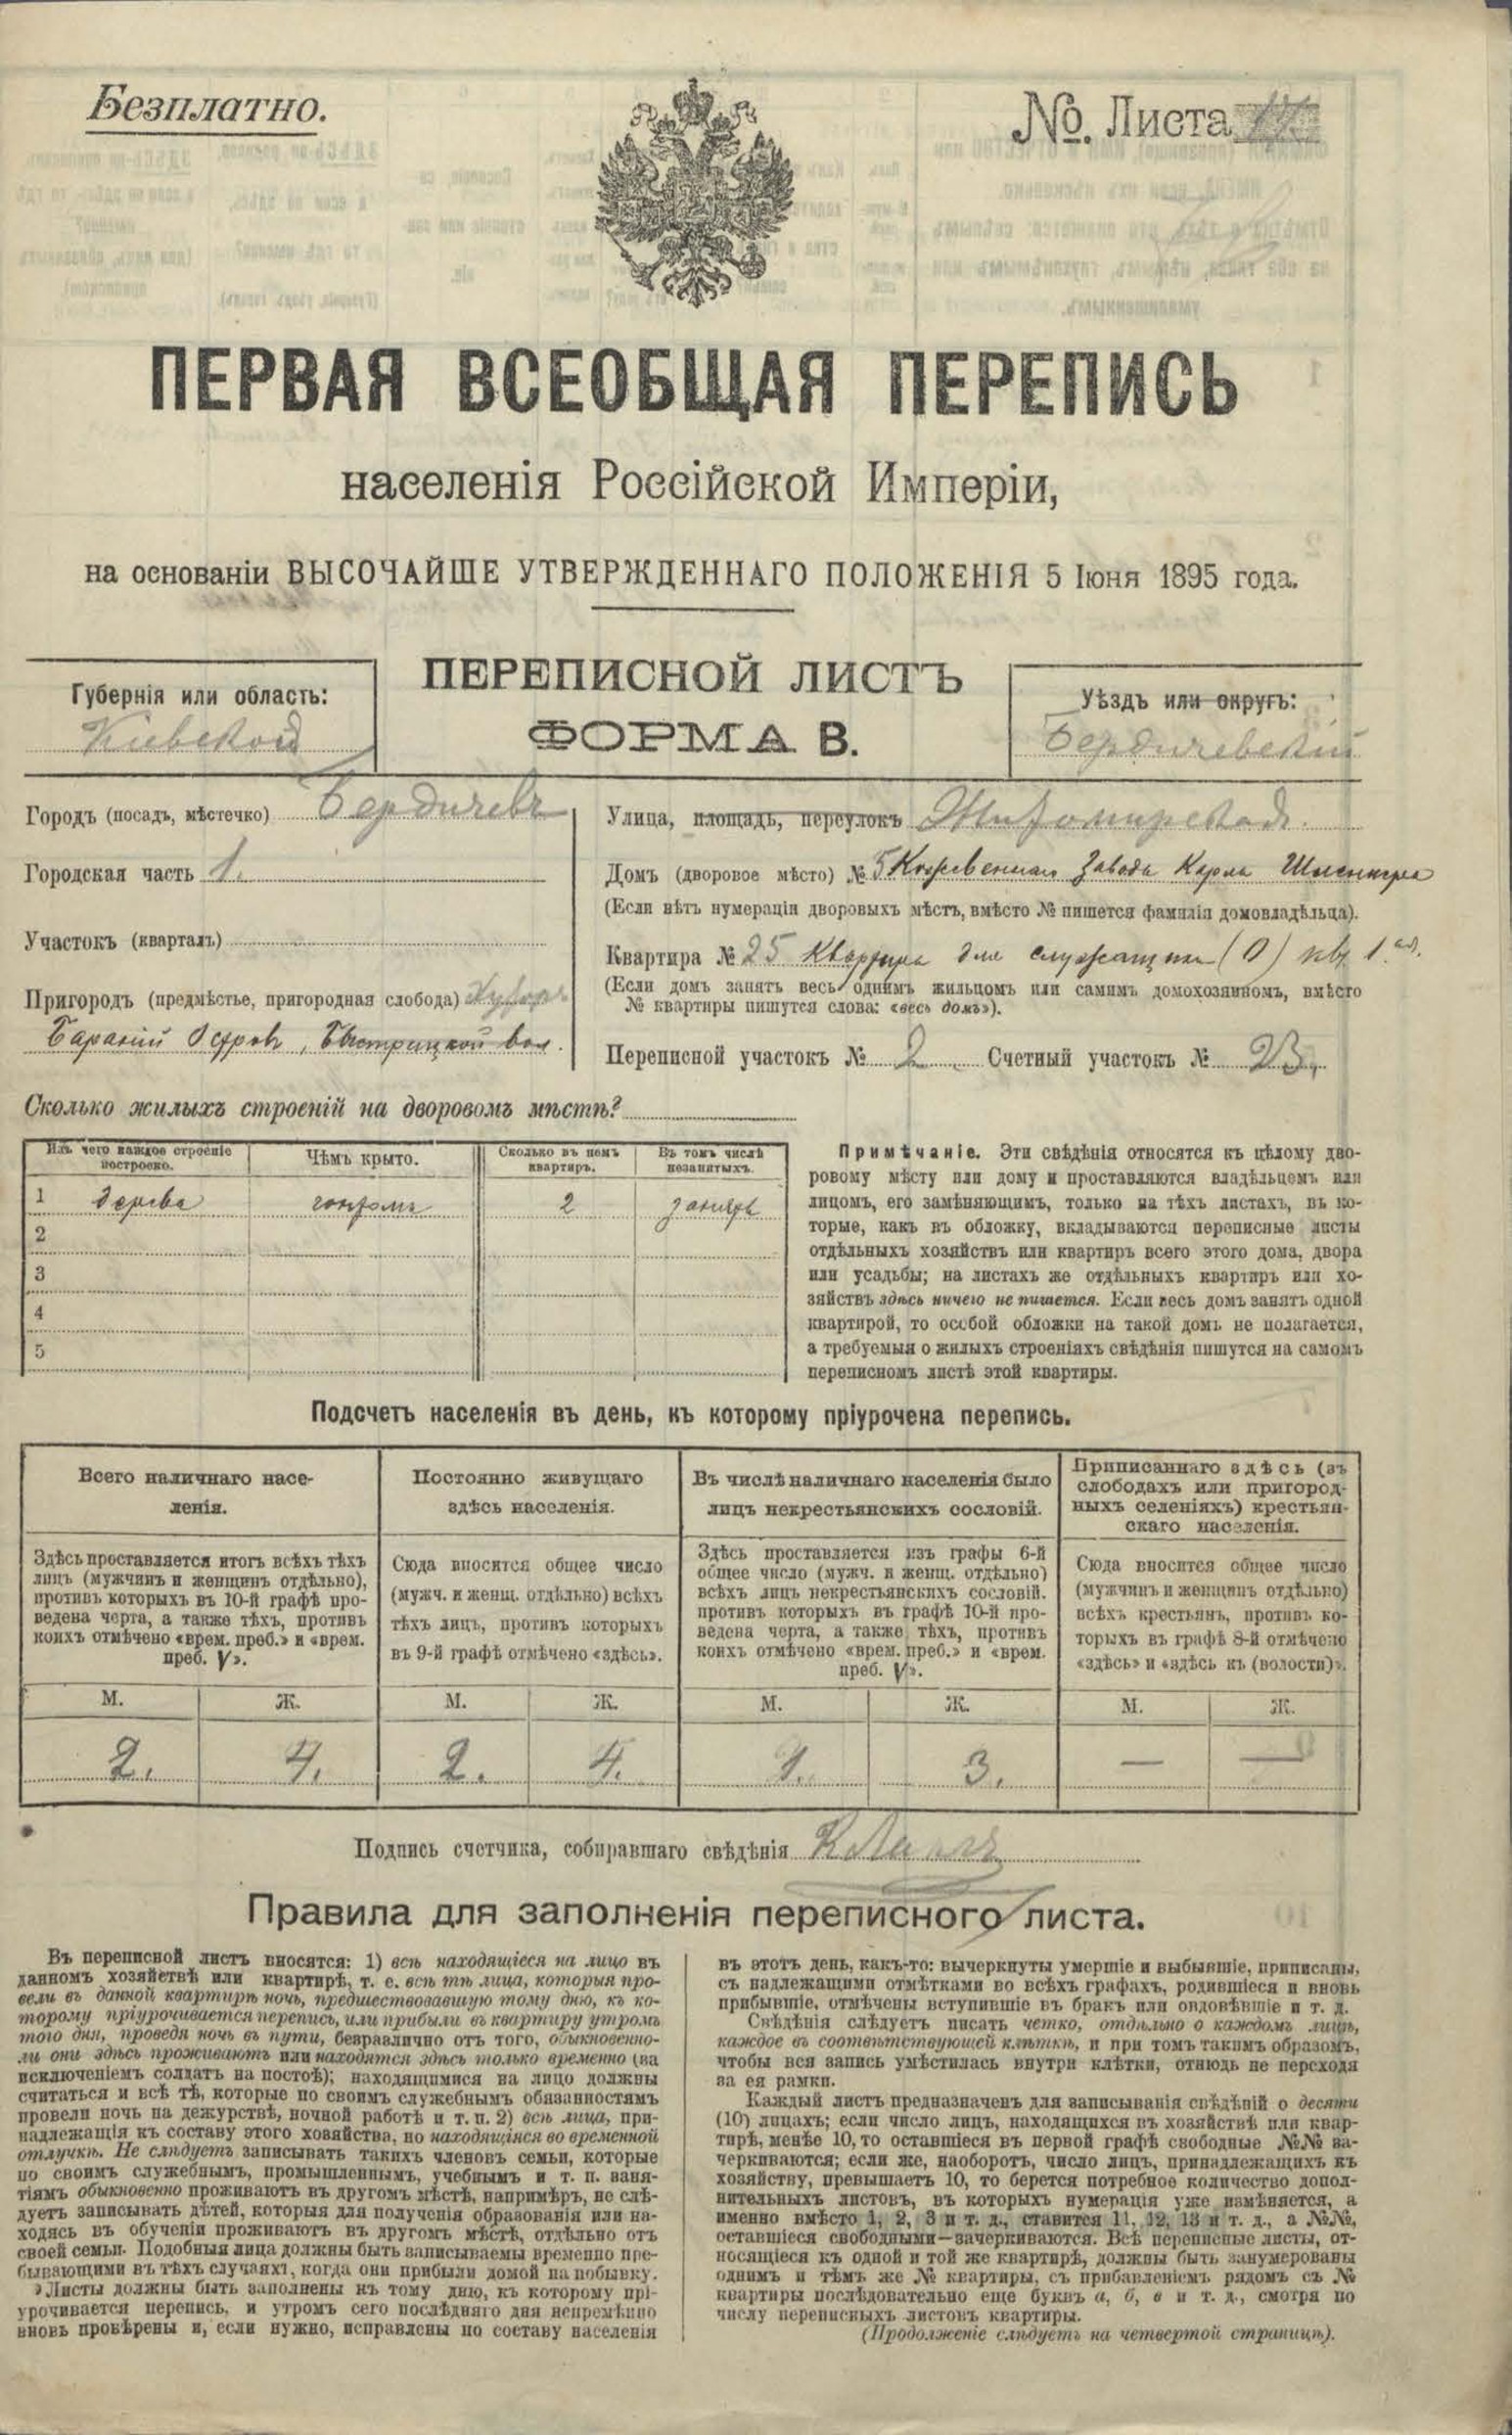 Безплатно.
№. Листа
ПЕРВАЯ ВСЕОБЩАЯ ПЕРЕПИСЬ
населенія Россійской Имперіи,
на основаніи ВЫСОЧАЙШЕ УТВЕРЖДЕННАГО ПОЛОЖЕНІЯ 5 Іюня 1895 года.
ПЕРЕПИСНОЙ ЛИСТЪ
ФОРМА В.
Губернія или область:
Кіевской
Уѣздъ или округъ:
Бердичевскій
Городъ (посадъ, мѣстечко) Бердичевъ
Городская часть 1.
Участокъ (кварталъ)
Пригородъ (предмѣстье, пригородная слобода) Хуторъ
Бараній Островъ, Быстрицкой вол.
Улица, площадь, переулокъ Житомирская.
Домъ (дворовое мѣсто) № 5 Кожевеннаго Завода Карла
(Если нѣтъ нумераціи дворовыхъ мѣстъ, вмѣсто № пишется фамилія домовладѣльца).
Квартира № 25 Квартира для служащихъ (О) кв. 1ая.
(Если домъ занятъ весь однимъ жильцомъ или самимъ домохозяиномъ, вмѣсто
№ квартиры пишутся слова: «весь домъ»).
Переписной участокъ № 2. Счетный участокъ № 23,
Сколько жилыхъ строеній на дворовомъ мѣстѣ?
Изъ чего каждое строеніе построено.
Чѣмъ крыто.
Сколько въ немъ квартиръ.
Въ томъ числѣ незанятыхъ.
1 дерева гонтомъ 2 заняты
2
3
4
5
Примѣчаніе. Эти свѣдѣнія относятся къ цѣлому дво-
ровому мѣсту или дому и проставляются владѣльцемъ или
лицомъ, его замѣняющимъ, только на тѣхъ листахъ, въ ко-
торые, какъ въ обложку, вкладываются переписные листы
отдѣльныхъ хозяйствъ или квартиръ всего этого дома, двора
или усадьбы; на листахъ же отдѣльныхъ квартиръ или хо-
зяйствъ здѣсь ничего не пишется. Если весь домъ занятъ одной
квартирой, то особой обложки на такой домъ не полагается,
а требуемыя о жилыхъ строеніяхъ свѣдѣнія пишутся на самомъ
переписномъ листѣ этой квартиры.
Подсчетъ населенія въ день, къ которому пріурочена перепись.
Всего наличнаго насе-
ленія.
Постоянно живущаго
здѣсь населенія.
Въ числѣ наличнаго населенія было
лицъ некрестьянскихъ сословій.
Приписаннаго здѣсь (въ
слободахъ или пригород-
ныхъ селеніяхъ) крестьян-
скаго населенія.
Здѣсь проставляется итогъ всѣхъ тѣхъ
лицъ (мужчинъ и женщинъ отдѣльно),
противъ которыхъ въ 10-й графѣ про-
ведена черта, а также тѣхъ, противъ
коихъ отмѣчено «врем. преб.» и «врем.
преб. V».
Сюда вносится общее число
(мужч. и женщ. отдѣльно) всѣхъ
тѣхъ лицъ, противъ которыхъ
въ 9-й графѣ отмѣчено «здѣсь».
Здѣсь проставляется изъ графы 6-й
общее число (мужч. и женщ. отдѣльно)
всѣхъ лицъ некрестьянскихъ сословій.
противъ которыхъ въ графѣ 10-й про-
ведена черта, а также тѣхъ, противъ
коихъ отмѣчено «врем. преб.» и «врем.
преб. V».
Сюда вносится общее число
(мужчинъ и женщинъ отдѣльно)
всѣхъ крестьянъ, противъ ко-
торыхъ въ графѣ 8-й отмѣчено
«здѣсь» и «здѣсь къ (волости)».
М. Ж. М. Ж. М. Ж. М. Ж.
2. 4. 2. 4. 1. 3. — —
Подпись счетчика, собиравшаго свѣдѣнія
Правила для заполненія переписного листа.
Въ переписной листъ вносятся: 1) всѣ находящіеся на лицо въ
данномъ хозяйствѣ или квартирѣ, т. е. всѣ тѣ лица, которыя про-
вели въ данной квартирѣ ночь, предшествовавшую тому дню, къ ко-
торому пріурочивается перепись, или прибыли въ квартиру утромъ
того дня, проведя ночь въ пути, безразлично отъ того, обыкновенно-
ли они здѣсь проживаютъ или находятся здѣсь только временно (за
исключеніемъ солдатъ на постоѣ); находящимися на лицо должны
считаться и всѣ тѣ, которые по своимъ служебнымъ обязанностямъ
провели ночь на дежурствѣ, ночной работѣ и т. п. 2) всѣ лица, при-
надлежащія къ составу этого хозяйства, но находящіяся во временной
отлучкѣ. Не слѣдуетъ записывать такихъ членовъ семьи, которые
по своимъ служебнымъ, промышленнымъ, учебнымъ и т. п. заня-
тіямъ обыкновенно проживаютъ въ другомъ мѣстѣ, напримѣръ, не слѣ-
дуетъ записывать дѣтей, которыя для полученія образованія или на-
ходясь въ обученіи проживаютъ въ другомъ мѣстѣ, отдѣльно отъ
своей семьи. Подобныя лица должны быть записываемы временно пре-
бывающими въ тѣхъ случаяхъ, когда они прибыли домой на побывку.
Листы должны быть заполнены къ тому дню, къ которому прі-
урочивается перепись, и утромъ сего послѣдняго дня непремѣнно
вновь провѣрены и, если нужно, исправлены по составу населенія
въ этотъ день, какъ-то: вычеркнуты умершіе и выбывшіе, приписаны,
съ надлежащими отмѣтками во всѣхъ графахъ, родившіеся и вновь
прибывшіе, отмѣчены вступившіе въ бракъ или овдовѣвшіе и т. д.
Свѣдѣнія слѣдуетъ писать четко, отдѣльно о каждомъ лицѣ,
каждое въ соотвѣтствующей клѣткѣ, и при томъ такимъ образомъ,
чтобы вся запись умѣстилась внутри клѣтки, отнюдь не переходя
за ея рамки.
Каждый листъ предназначенъ для записыванія свѣдѣній о десяти
(10) лицахъ; если число лицъ, находящихся въ хозяйствѣ или квар-
тирѣ, менѣе 10, то оставшіеся въ первой графѣ свободные №№ за-
черкиваются; если же, наоборотъ, число лицъ, принадлежащихъ къ
хозяйству, превышаетъ 10, то берется потребное количество допол-
нительныхъ листовъ, въ которыхъ нумерація уже измѣняется, а
именно вмѣсто 1, 2, 3 и т. д., ставится 11, 12, 13 и т. д., а №№,
оставшіеся свободными—зачеркиваются. Всѣ переписные листы, от-
носящіеся къ одной и той же квартирѣ, должны быть занумерованы
однимъ и тѣмъ же № квартиры, съ прибавленіемъ рядомъ съ №
квартиры послѣдовательно еще буквъ а, б, в и т. д., смотря по
числу переписныхъ листовъ квартиры.
(Продолженіе слѣдуетъ на четвертой страницѣ).